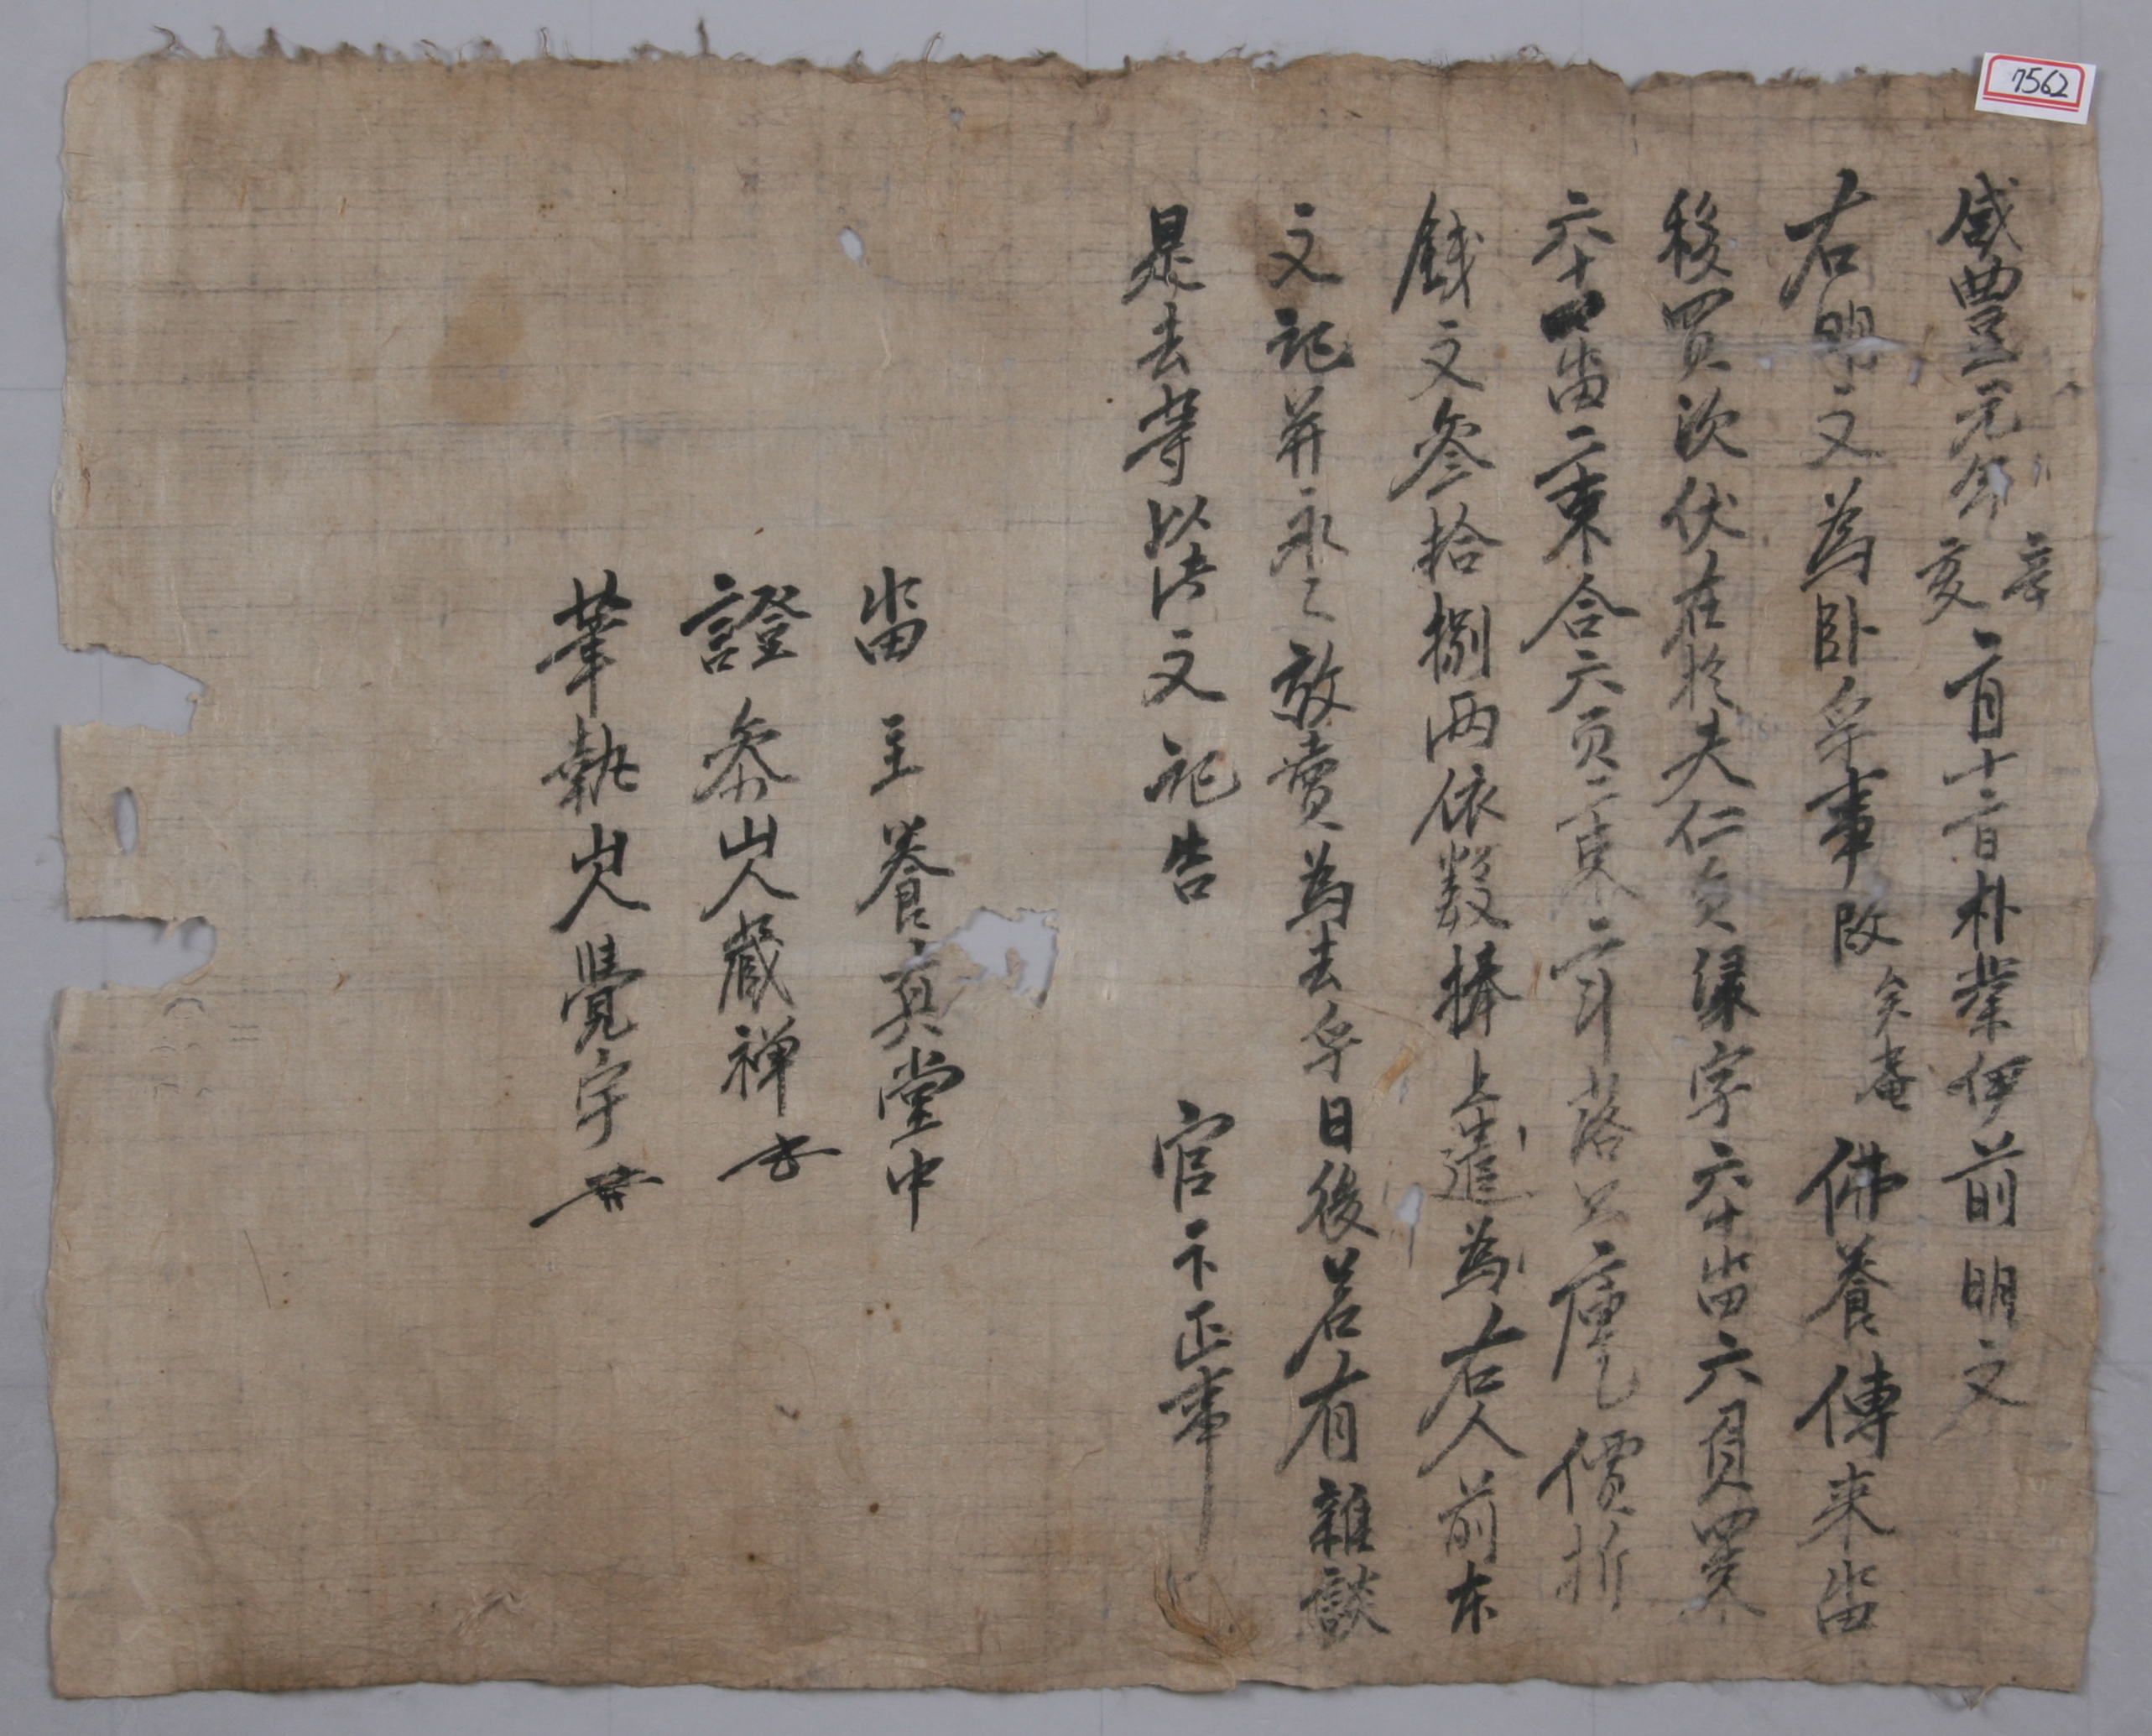 7562
咸豐元年辛亥二月十二日朴業伊前明文
右明文為臥乎事段矣庵佛養傳來畓
移買次伏在於夫仁員緣字六十畓六負四束
六十四畓二束合六負六束二斗落㐣庫乙價折
錢文參拾捌兩依數捧上遣為右人前本
文記并永〻放賣為去乎日後若有雜談
是去等以此文記告官卞正事
畓主養真堂中
證參山人藏禪
筆執山人覺宇